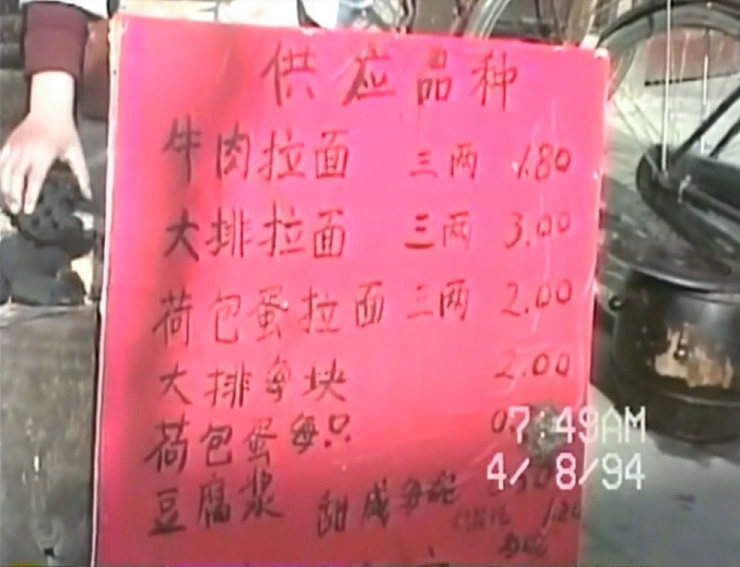 供应品种
牛肉拉面 三两 1.80
大排拉面 三两 3.00
荷包蛋拉面 三两 2.00
大排每块 2.00
荷包蛋每只
豆腐浆 甜咸每碗
7:49AM
4/ 8/94